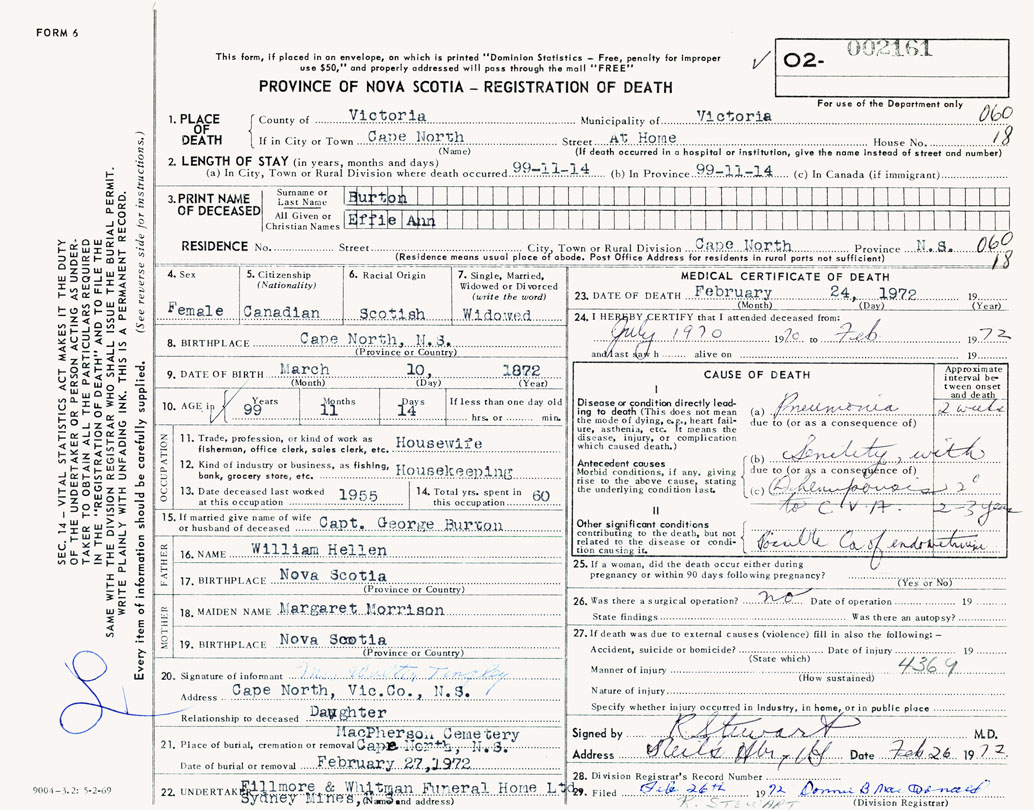 FORM 6
This form, if placed in an envelope, on which is printed "Dominion Statistics – Free, penalty for improper
use $50," and properly addressed will pass through the mail "FREE"
O2- 002161
PROVINCE OF NOVA SCOTIA – REGISTRATION OF DEATH
For use of the Department only
1. PLACE OF DEATH
County of Victoria Municipality of Victoria 060
If in City or Town Cape North Street At Home House No. 18
(Name) (If death occurred in a hospital or institution, give the name instead of street and number)
2. LENGTH OF STAY (in years, months and days)
(a) In City, Town or Rural Division where death occurred 99-11-14 (b) In Province 99-11-14 (c) In Canada (if immigrant)
3. PRINT NAME OF DECEASED
Surname or Last Name Burton
All Given or Christian Names Effie Ann
RESIDENCE No. Street City, Town or Rural Division Cape North Province N.S. 060
(Residence means usual place of abode. Post Office Address for residents in rural parts not sufficient) 18
4. Sex
Female
5. Citizenship
(Nationality)
Canadian
6. Racial Origin
Scotish
7. Single, Married,
Widowed or Divorced
(write the word)
Widowed
8. BIRTHPLACE Cape North, N.S.
(Province or Country)
9. DATE OF BIRTH March 10, 1872
(Month) (Day) (Year)
10. AGE in Years 99 Months 11 Days 14 If less than one day old
hrs. or min.
OCCUPATION
11. Trade, profession, or kind of work as
fisherman, office clerk, sales clerk, etc. Housewife
12. Kind of industry or business, as fishing,
bank, grocery store, etc. Housekeeping
13. Date deceased last worked
at this occupation 1955
14. Total yrs. spent in
this occupation 60
15. If married give name of wife
or husband of deceased Capt. George Burton
FATHER
16. NAME William Hellen
17. BIRTHPLACE Nova Scotia
(Province or Country)
MOTHER
18. MAIDEN NAME Margaret Morrison
19. BIRTHPLACE Nova Scotia
(Province or Country)
20. Signature of informant
Address Cape North, Vic.Co., N.S.
Relationship to deceased Daughter
MacPherson Cemetery
21. Place of burial, cremation or removal Cape North, N.S.
Date of burial or removal February 27,1972
22. UNDERTAKER Fillmore & Whitman Funeral Home Ltd.
Sydney Mines, (Name and address)
MEDICAL CERTIFICATE OF DEATH
23. DATE OF DEATH February 24, 1972 19
(Month) (Day) (Year)
24. I HEREBY CERTIFY that I attended deceased from:
July 1970 1970 to Feb 1972
and last saw h alive on 19
CAUSE OF DEATH
Approximate
interval be-
tween onset
and death
I
Disease or condition directly lead-
ing to death (This does not mean
the mode of dying, e.g., heart fail-
ure, asthenia, etc. It means the
disease, injury, or complication
which caused death.)
(a) Pneumonia 2 weeks
due to (or as a consequence of)
Antecedent causes
Morbid conditions, if any, giving
rise to the above cause, stating
the underlying condition last.
(b) Senility, with
due to (or as a consequence of)
(c) 2°
to C.V.A. 2-3 years
II
Other significant conditions
contributing to the death, but not
related to the disease or condi-
tion causing it.
Ca of endometrium
25. If a woman, did the death occur either during
pregnancy or within 90 days following pregnancy?
(Yes or No)
26. Was there a surgical operation? no Date of operation 19
State findings Was there an autopsy?
27. If death was due to external causes (violence) fill in also the following: –
Accident, suicide or homicide? Date of injury 19
(State which)
Manner of injury 4369
(How sustained)
Nature of injury
Specify whether injury occurred in Industry, in home, or in public place
Signed by R Stewart M.D.
Address Neils Hbr Date Feb 26 1972
28. Division Registrar's Record Number
29. Filed Feb. 26th 1972 Donnie B MacDonald
R. STEWART (Division Registrar)
SEC. 14 – VITAL STATISTICS ACT MAKES IT THE DUTY
OF THE UNDERTAKER OR PERSON ACTING AS UNDER-
TAKER TO OBTAIN ALL THE PARTICULARS REQUIRED
IN THE "REGISTRATION OF DEATH" AND TO FILE THE
SAME WITH THE DIVISION REGISTRAR WHO SHALL ISSUE THE BURIAL PERMIT.
WRITE PLAINLY WITH UNFADING INK. THIS IS A PERMANENT RECORD.
Every item of information should be carefully supplied. (See reverse side for instructions.)
9004-3.2: 5-2-69